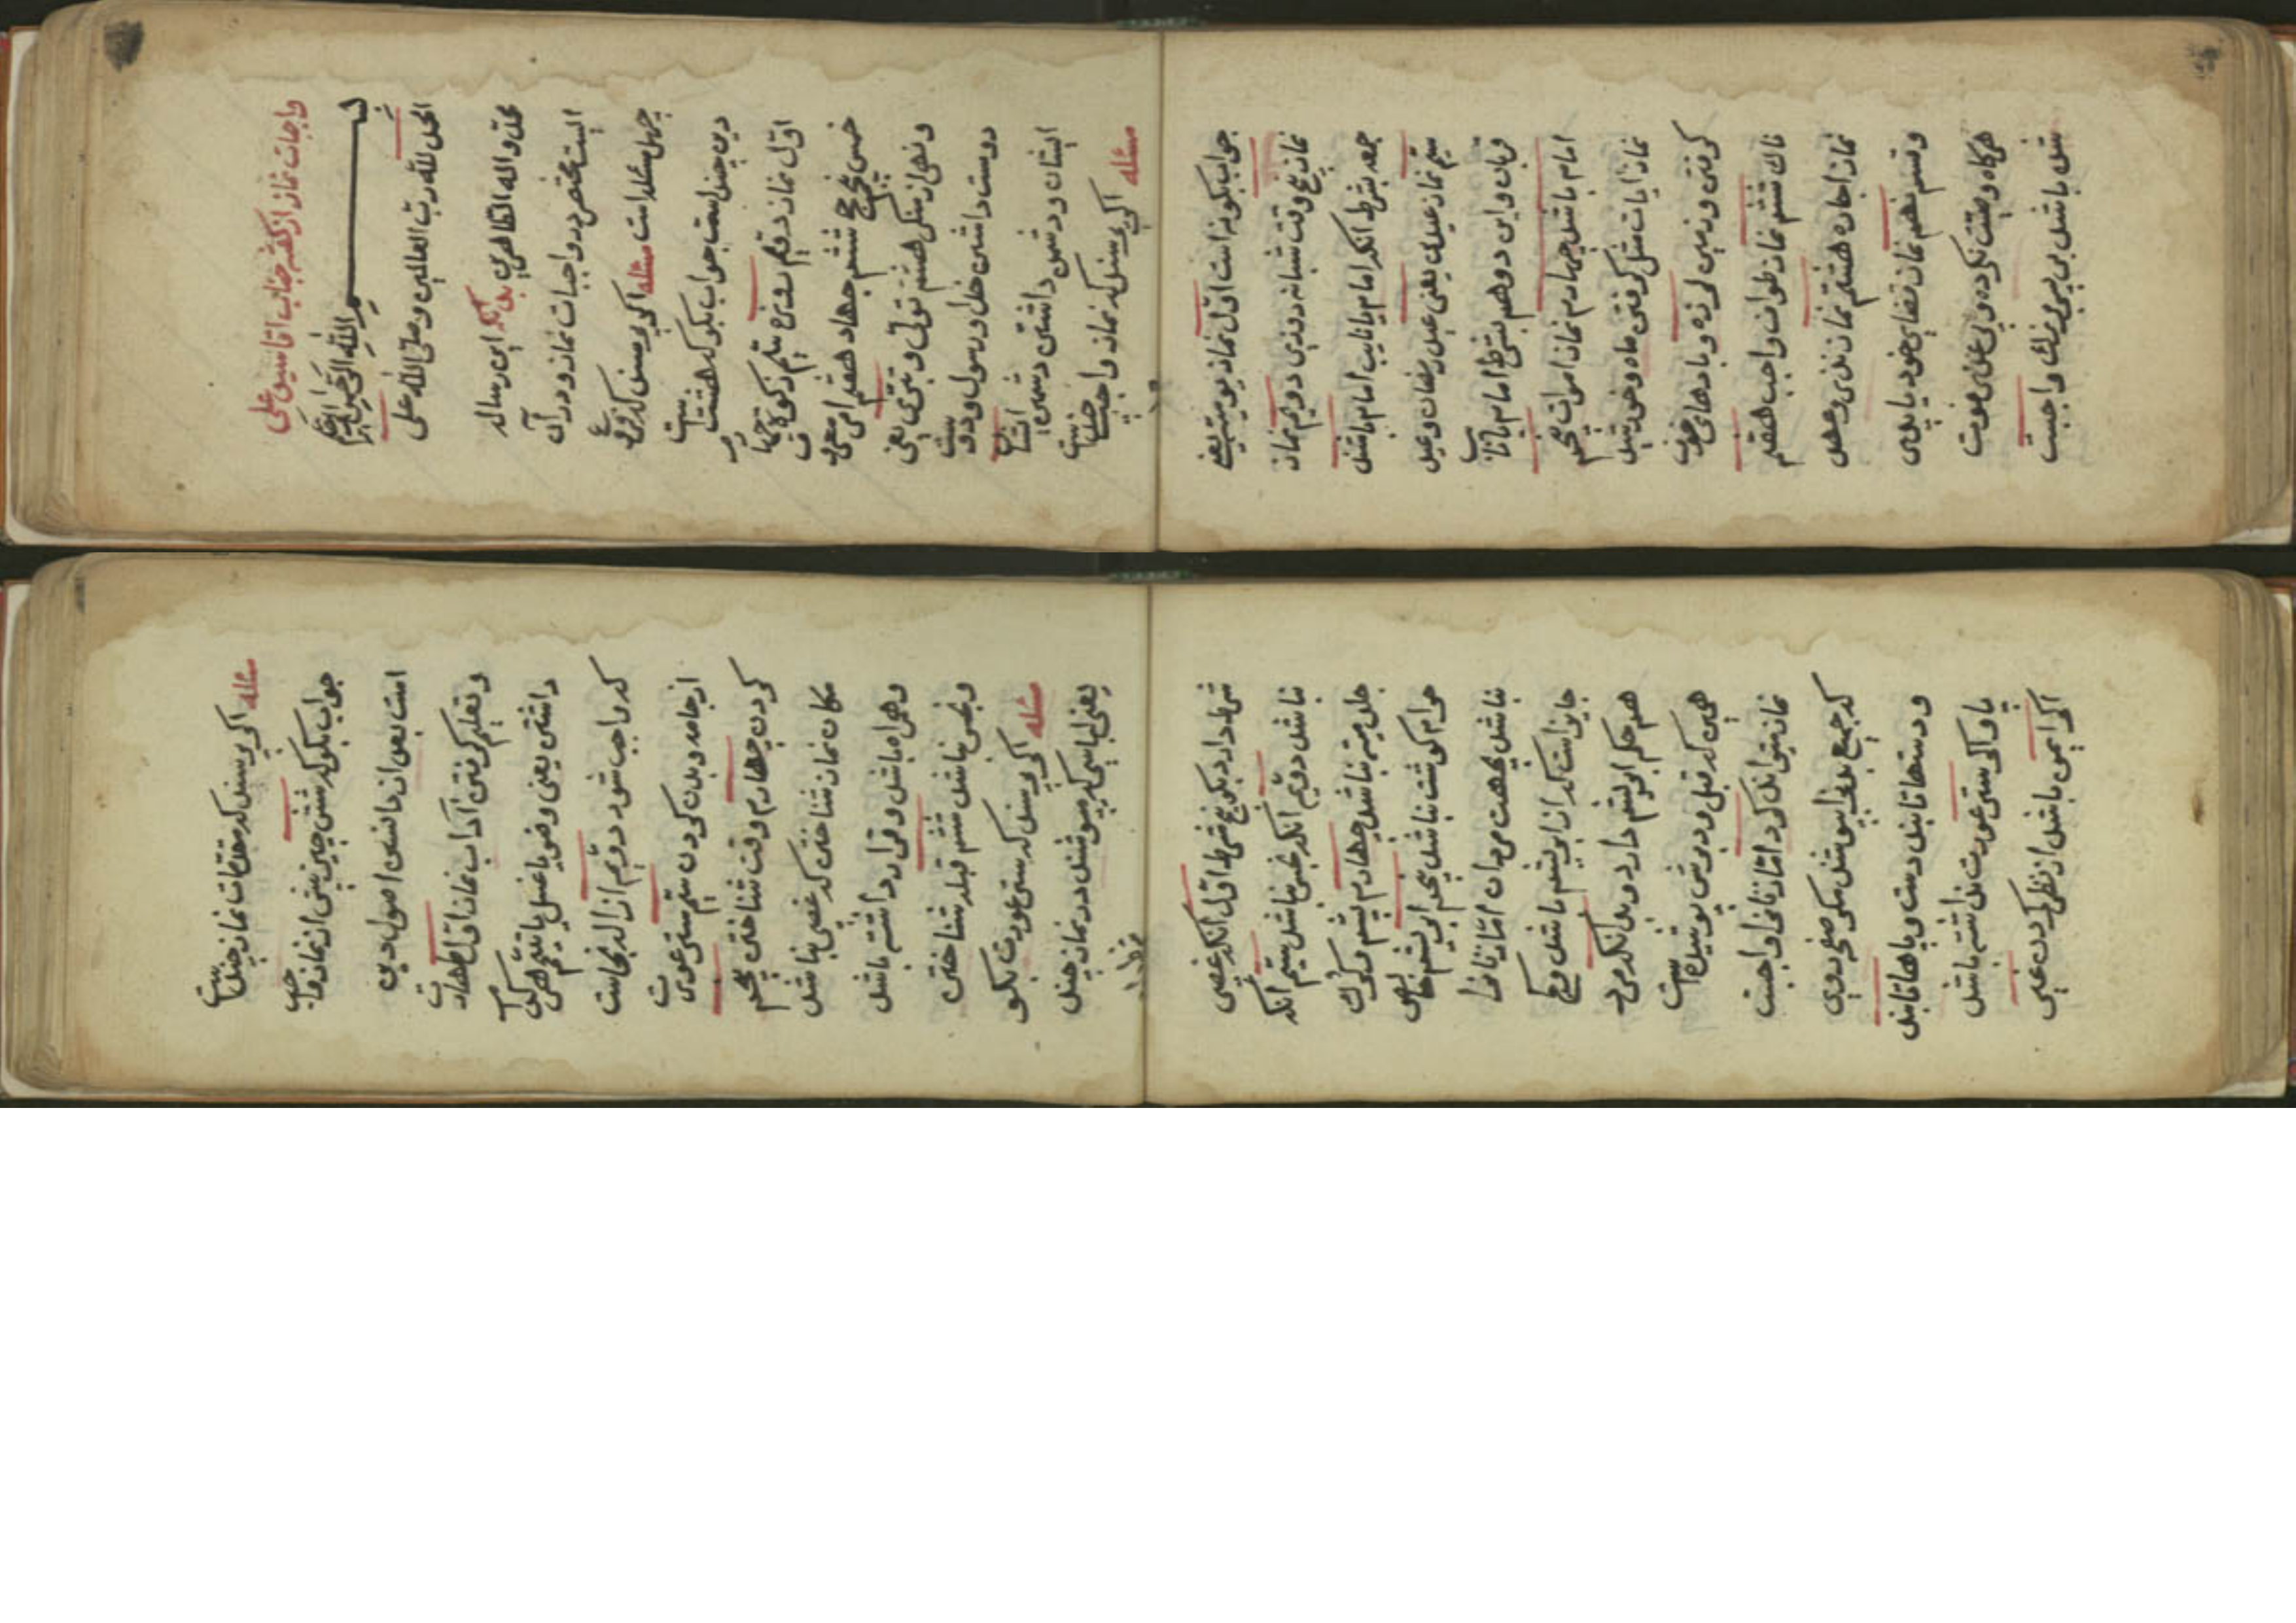 واجبات نماز از گفته جناب اقا سید علی
بسم الله الرحمن الرحیم
الحمد لله رب العالمین وصلی الله علی
محمد واله الطاهرین بدانکه این رساله
ایست مختصر در واجبات نماز و در آن
چهل مسئله است مسئله اکر پرسند که فروع
دین چند است جواب بکو که هشت است
اول نماز دویم روزه سیم زکوة چهارم
خمس پنجم حج ششم جهاد هفتم امر بمعروف
ونهی از منکر هشتم تولی و تبری یعنی
دوست داشتن خدا و رسول و دوست
ایشان و دشمن داشتن دشمن ایشان
مسئله اکر پرسند که نماز واجب چند است
جواب بکو نه است اول نماز یومیه یعنی
نماز پنج وقت شبانه روزی دویم نماز
جمعه بشرط انکه امام یا نایب امام باشد
سیم نماز عیدین یعنی عید رمضان و عید
قربان و این دو هم بشرط امام یا نایب
امام باشد چهارم نماز اموات پنجم
نماز ایات مثل کرفتن ماه و خورشید
کرفتن و زمین لرزه و بادهای خوف
ناک ششم نماز طواف واجب هفتم
نماز اجاره هشتم نماز نذر و عهد
و قسم نهم نماز قضای خود یا پدر
هرکاه وصیت نکرده و بی عذر فوت
شده باشد بر پسر بزرک واجبست
مسئله اکر پرسند که مقدمات نماز چند است
جواب بکو که شش چیز پیش از نماز واجب
است بعد از دانستن اصول دین
و تعلیم کرفتن آداب نماز اول طهارت
داشتن یعنی وضو یا غسل یا تیمم هر کدام
که واجب شود دویم ازاله نجاست
از جامه و بدن کردن سیم ستر عورت
کردن چهارم وقت شناختن پنجم
مکان نماز شناختن که غصبی نباشد
و همراه باشد و قرار داشته باشد
و نجس نباشد ششم قبله شناختن
مسئله اکر پرسند که ستر عورت بکو
یعنی لباسی که میپوشند در نماز چند
شرط دارد بکو پنج شرط اول انکه غصبی
نباشد دویم انکه نجس نباشد سیم انکه
جلد میته نباشد چهارم پشم و کرک
حرام کوشت نباشد پنجم ابریشم خالص
نباشد بجهت مردان اما زنان را
جایز است که از ابریشم باشد و کج
هم حکم ابریشم دارد و بدانکه مرد
همین که قبل و دبرش پوشیده است
نماز میتواند کرد اما زنان را واجبست
که جمیع بدن را بپوشند مکر صفحه روی
و دستها تا بند دست و پاها تا بند
پا و اکر ستر عورت نداشته باشد
اکر ایمن باشد از نظر کردن غیر